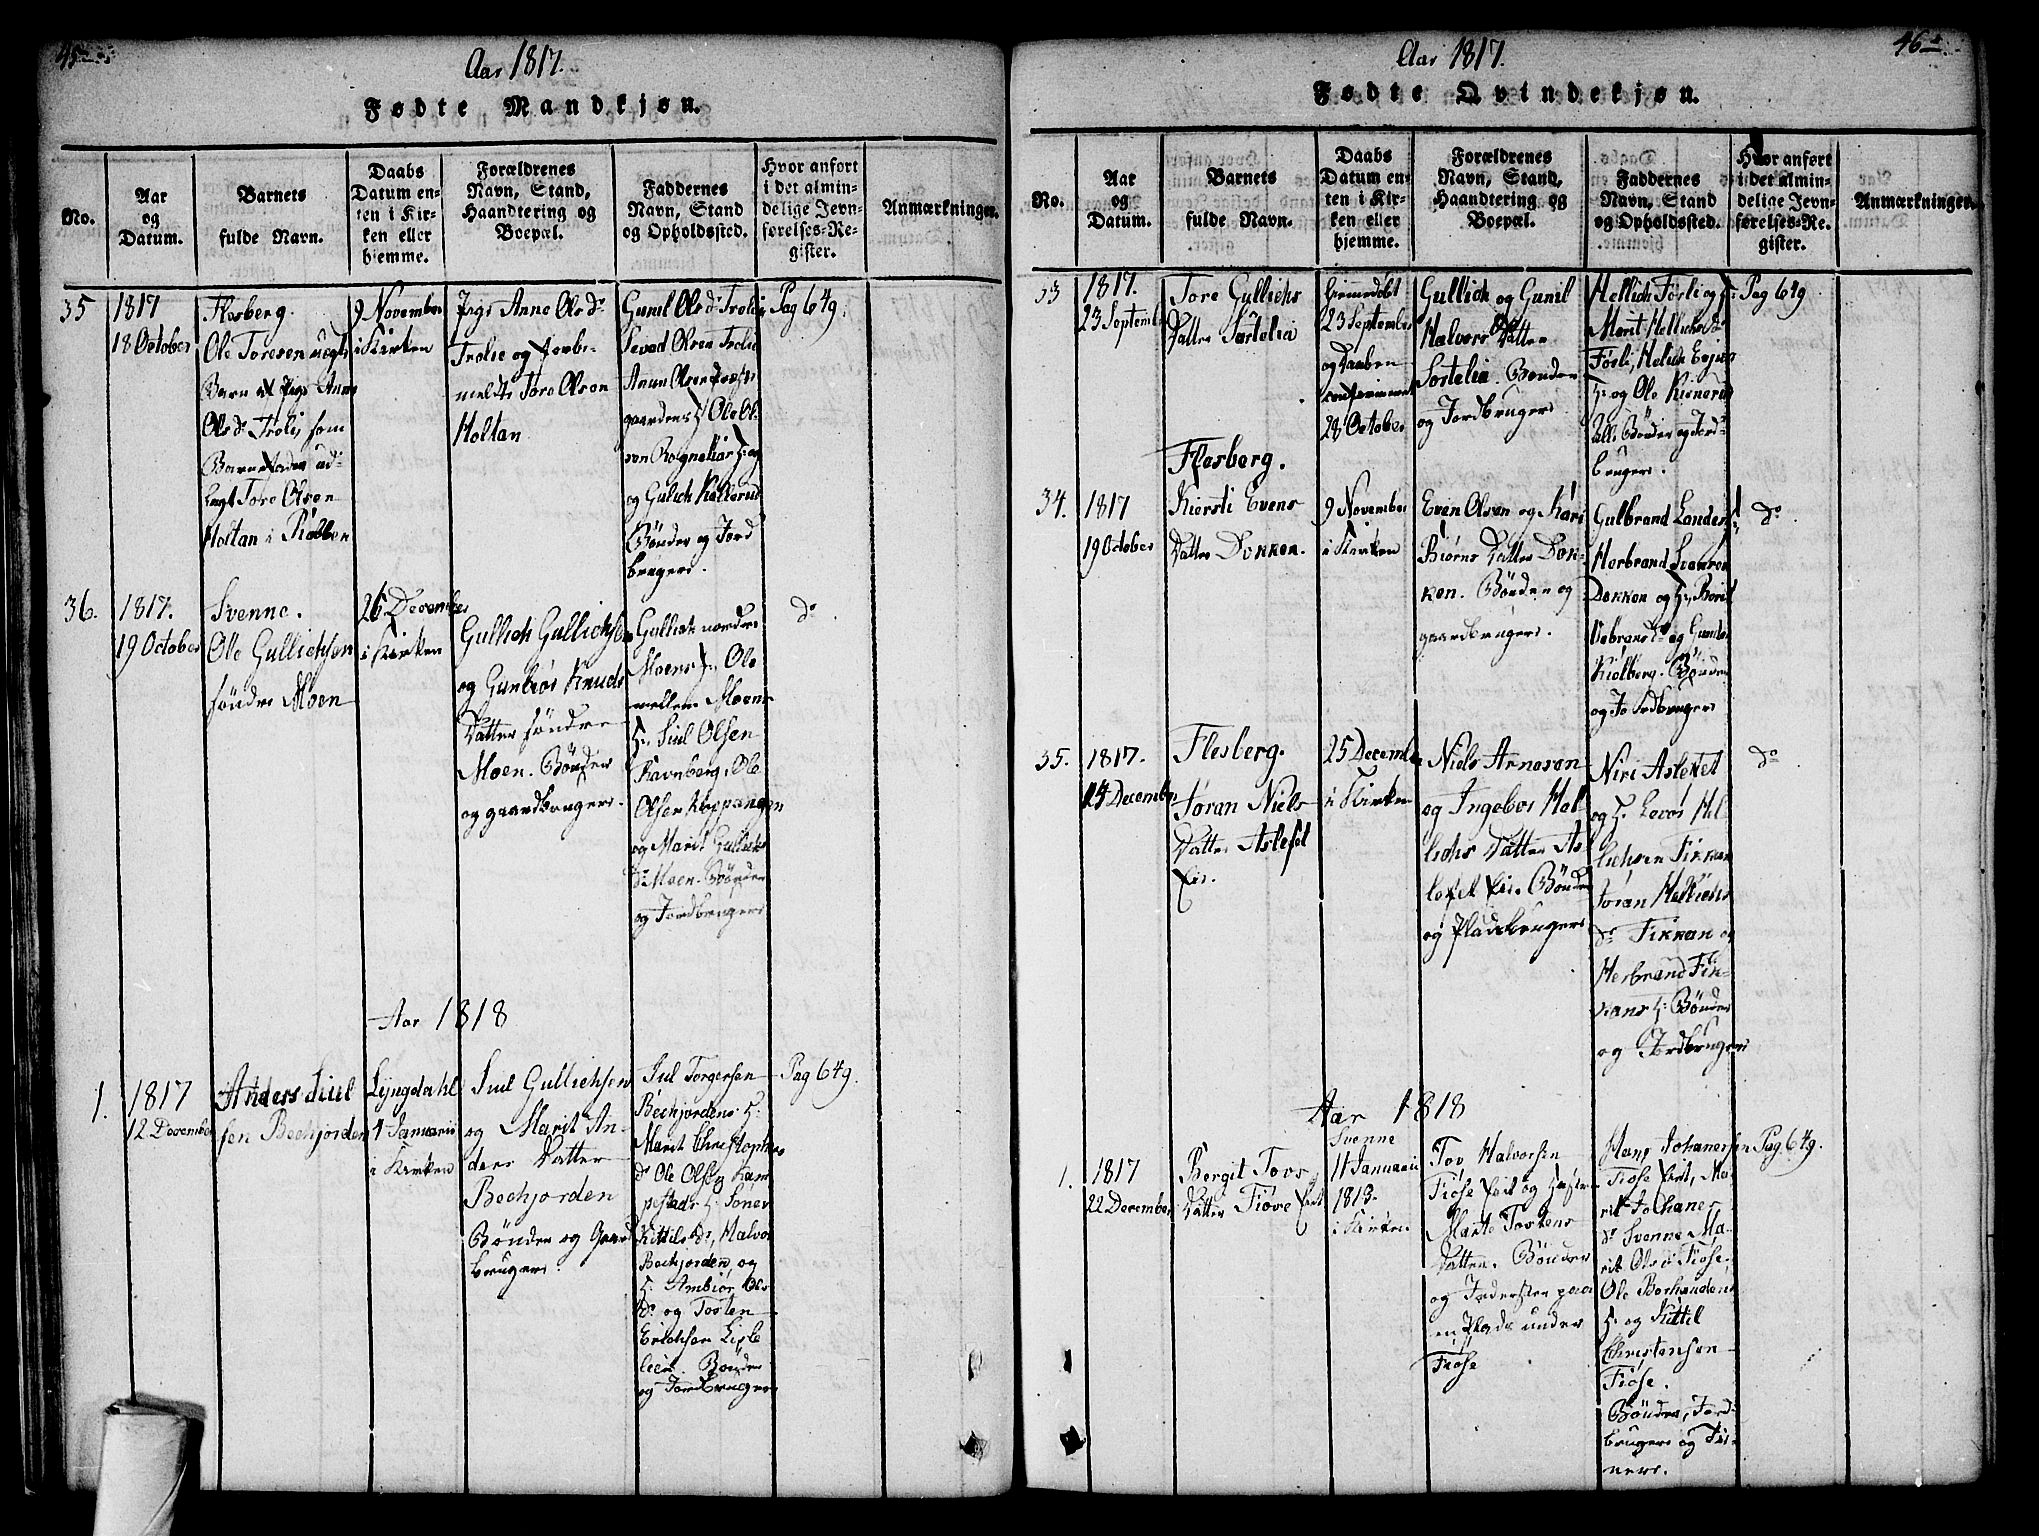 45
Aar 1817.
Fødte Mandkjøn.
No.
Aar
og
Datum.
Barnets
fulde Navn.
Daabs
Datum en-
ten i Kir-
ken eller
hjemme.
Forældrenes
Navn, Stand,
Haandtering og
Boepæl.
Faddernes
Navn, Stand
og Opholdssted.
Hvor anført
i det almin-
delige Jevn-
førelses-Re-
gister.
Anmærkninger.
35
1817
18 October
Flesberg.
Ole Toresen uægte
Barn af Pige Anne
Ols Dr Trolie som
Barnefader ud-
lagt Tore Olsen
Holtan i
9 November
i Kirken
Pige Anne Ols Dr
Trolie og
Tore Olson
Holtan
Gunil Ols Dr Trolie
Sevad Olsen Trolie
gaardens
og Gulich Kallerud
Bønder og Jord
brugere.
Pag 649.
36.
1817.
19 October
Svenne.
Ole Gullichsen
søndre Moen
26 December
i Kirken
Gullich Gullichsen
og Gunbiør Knuds
Datter søndre
Moen. Bønder
og gaardbrugere.
Gullich nordre
Moens H. Ole
mellem Moens
H. Siul Olsen
Ravnberg, Ole
Olsen Koppangen
og Marit Gulliks
Dr Moen. Bønder
og Jordbrugere
do
Aar 1818
1.
1817
12 December
Anders Siul
sen Bechjorden
Lyngdahl
1 Januarii
i Kirken
Siul Gullichsen
og Marit An-
ders Datter
Bechjorden
Bønder og Gaard
brugere.
Siul Torgersen
Bechjordens H.
Marit Christophers
Dr Ole Olsen Kam
pestads H. Sønev
Kittils Dr, Halvor
Bechjorden og
H. Ambiør Ols
Dr og Tosten
Erichsen Lisle
Bønder
og Jordbrugere
Pag 649.
46
Aar 1817.
Fødte Qvindekjøn.
No.
Aar
og
Datum.
Barnets
fulde Navn.
Daabs
Datum en-
ten i Kir-
ken eller
hjemme.
Forældrenes
Navn, Stand,
Haandtering og
Boepæl.
Faddernes
Navn, Stand
og Opholdssted.
Hvor anført
i det almin-
delige Jevn-
førelses-Re-
gister.
Anmærkninger.
33
1817.
23 September
Tore Gullichs
Datter Sørtelia
Hiemedøbt
23 September
og Daaben
confirmeret
28 October
Gullich og Gunil
Halvors Datter
Sørtelia. Bønder
og Jordbrugere
Hellich Førli og H.
Marit Hellichs Dr
Førli,
H. og Ole
alle Bønder og Jord-
brugere.
Pag 649
34.
1817
19 October
Flesberg.
Kiersti Evens
Datter Dokken.
9 November
i Kirken
Even Olsen og Kari
Biørns Datter Dok-
ken. Bønder og
gaardbrugere.
Gulbrand Landes
Herbrand
Dokken og H. Borit
og Gunder
Kiølberg. Bønder
og Jordbrugere
do
35.
1817.
24 December
Flesberg.
Jøran Niels
Datter Aslefet
Eie.
25 December
i Kirken
Niels Arnesen
og Ingebor Hel-
lichs Datter As-
lefet Eie. Bønder
og Pladsbrugere
Niri Aslefet
og H. Levor Hel-
lichsen Fikkan
Jøran Hellichs
Dr Fikkan og
Herbrand Fik-
kans H. Bønder
og Jordbrugere
do
Aar 1818
1.
1817
22 December
Bergit Tovs
Datter Fiøse Eiet
Svenne
11 Januarii
1818.
i Kirken
Tov Halvorsen
Fiøse Eiet og Hustru
Marte Tostens
Datter. Bønder
og Inderster paa
en Plads under
Fiøse
Hans Johannesen
Fiøse Eiet, Ma-
rit Johannes
Dr Svenne Ma-
rit Ols Fiøse,
Ole
H. og Kittil
Christensen
Fiøse.
Bønder, Jord-
brugere og Tie-
nere.
Pag 649.